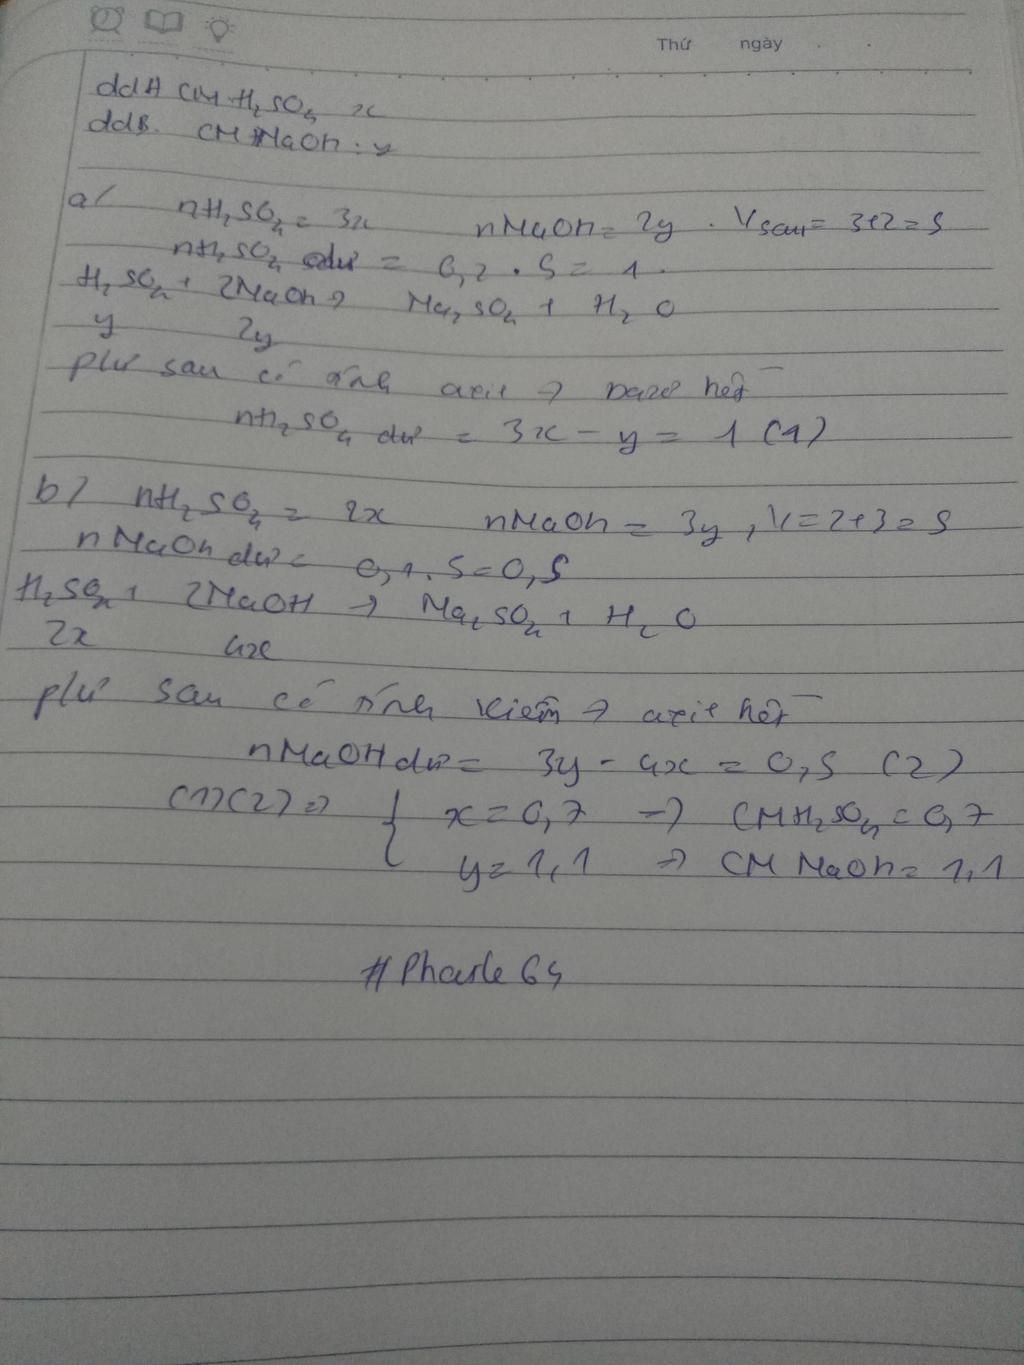 Thứ ngày
ddA CM H₂SO₄ x
ddB. CM NaOH : y
a/ nH₂SO₄ = 3x nNaOH = 2y . Vsau = 3+2=5
nH₂SO₄ dư = 0,2 . 5 = 1 .
H₂SO₄ + 2NaOH → Na₂SO₄ + H₂O
y 2y
phư sau có tính axit → bazơ hết
nH₂SO₄ dư = 3x - y = 1 (1)
b/ nH₂SO₄ = 2x nNaOH = 3y , V=2+3=5
nNaOH dư = 0,1.5=0,5
H₂SO₄ + 2NaOH → Na₂SO₄ + H₂O
2x 4x
phư sau có tính kiềm → axit hết
nNaOH dư = 3y - 4x = 0,5 (2)
(1)(2) => { x = 0,7 → CMH₂SO₄ = 0,7
y = 1,1 => CM NaOH = 1,1